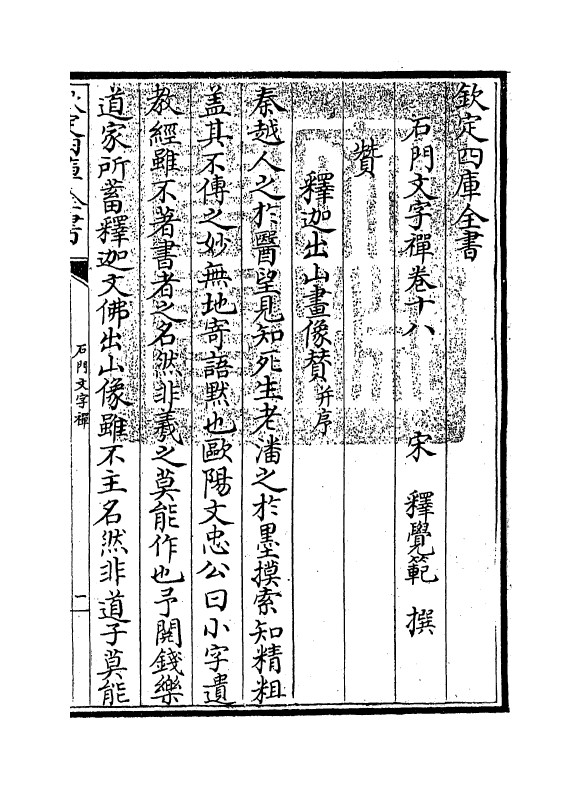 欽定四庫全書
石門文字禪卷十八
宋 釋覺範 撰
贊
釋迦出山畫像贊并序
秦越人之於醫望見知死生老潘之於墨摸索知精粗
盖其不傳之妙無地寄語黙也歐陽文忠公曰小字遺
教經雖不著書者之名然非羲之莫能作也予閱錢樂
道家所蓄釋迦文佛出山像雖不主名然非道子莫能
欽定四庫全書
石門文字禪
一